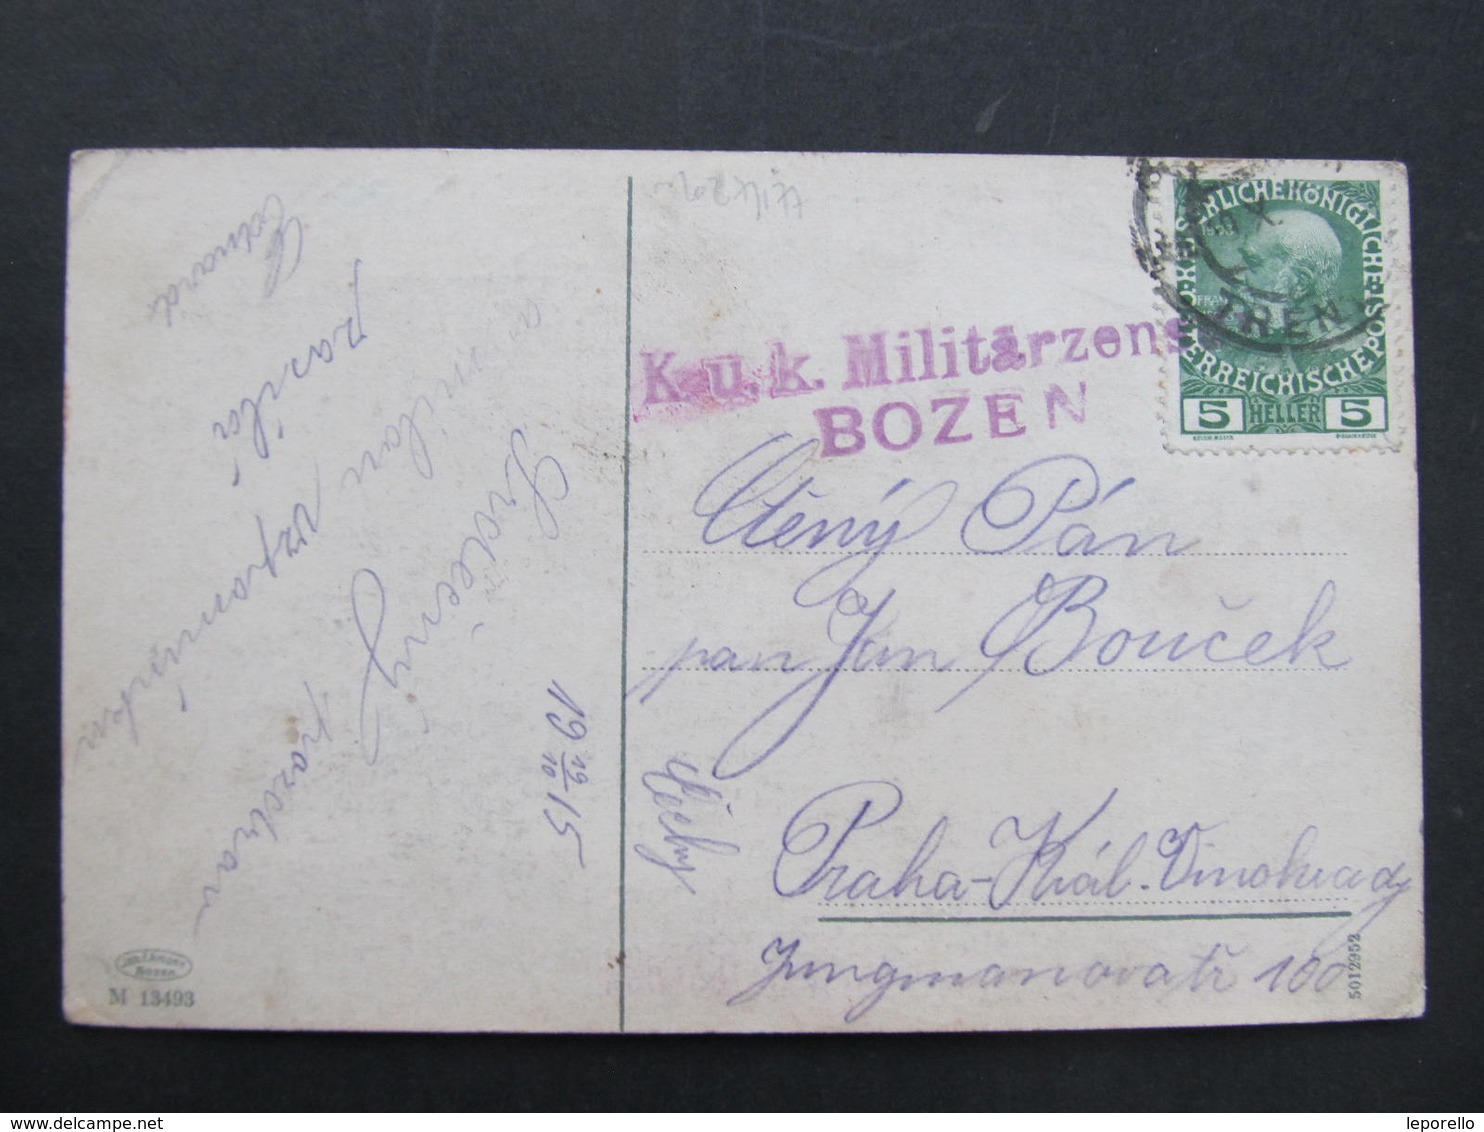 Srdečný pozdrav
a milou vzpomínku
posílá
Edvard
19 19/10 15
M 13493
K. u. k. Militärzens
BOZEN
KAISERLICHE KÖNIGLICHE
ÖSTERREICHISCHE POST
5 HELLER 5
TREN
Ctěný Pán
pan Jan Bouček
Praha-Král. Vinohrady
Jungmanova tř 100
Čechy
5012952
leporello